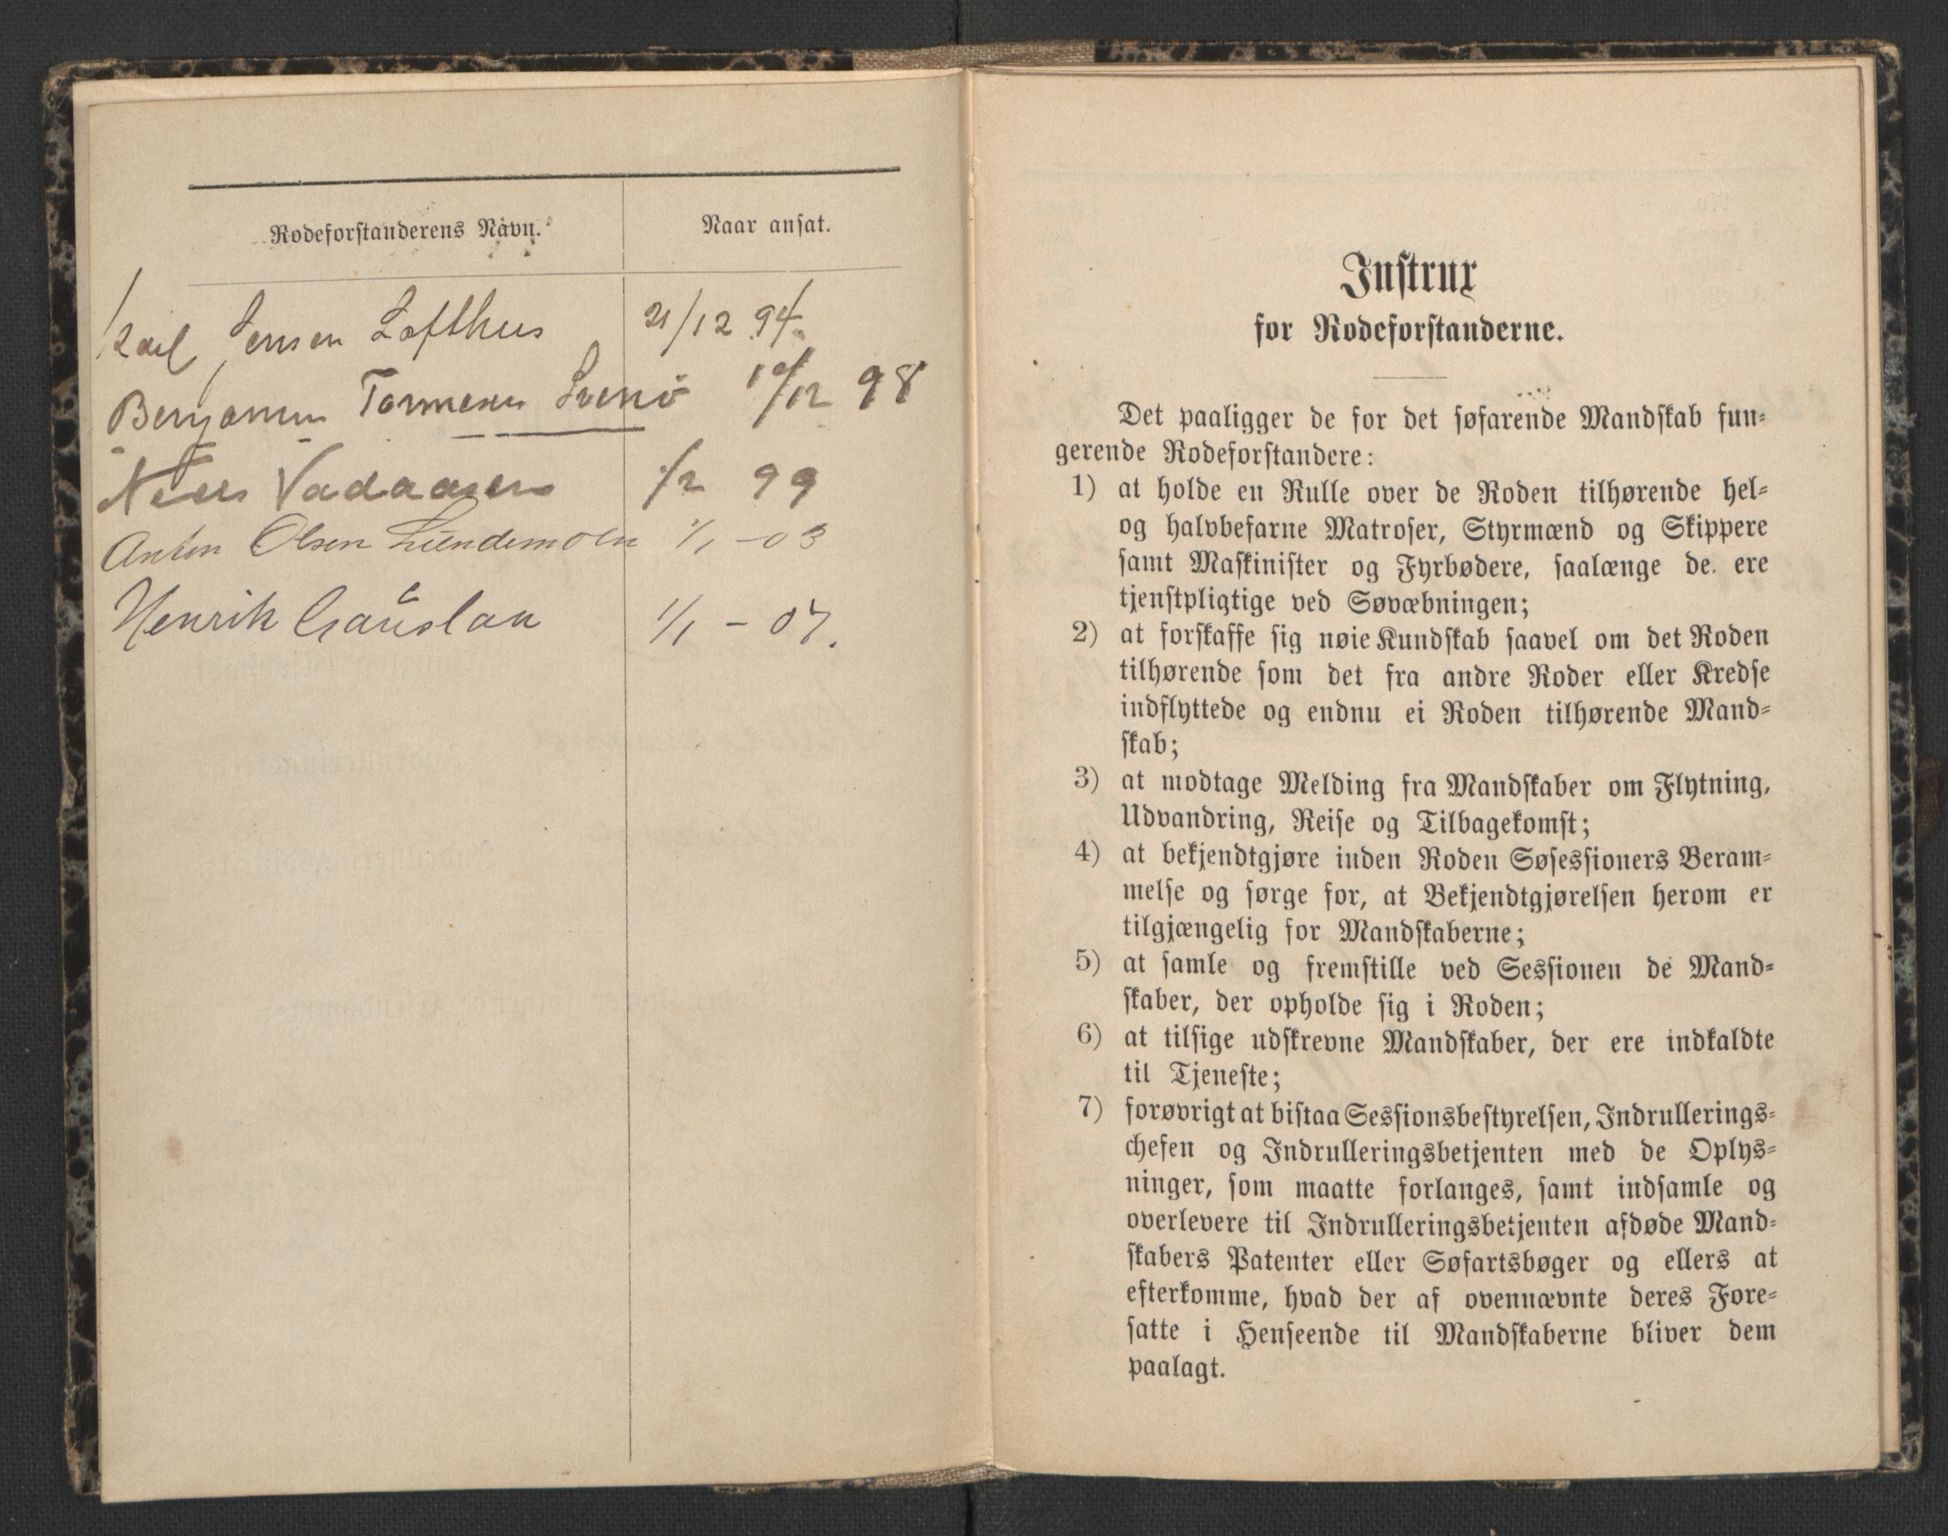 Rodeforstanderens Navn. Naar ansat.
Karl Jensen Lofthus 21/12 94.
Benjamin Tormesen Svenö 10/12 98
Niels Vadaasen 1/2 99
Anton Olsen Lundemoen 1/1 - 03
Henrik Gauslaa 1/1 - 07.
Instrux
for Rodeforstanderne.
Det paaligger de for det søfarende Mandskab fun-
gerende Rodeforstandere:
1) at holde en Rulle over de Roden tilhørende hel-
og halvbefarne Matroser, Styrmænd og Skippere
samt Maskinister og Fyrbødere, saalænge de ere
tjenstpligtige ved Søvæbningen;
2) at forskaffe sig nøie Kundskab saavel om det Roden
tilhørende som det fra andre Roder eller Kredse
indflyttede og endnu ei Roden tilhørende Mand-
skab;
3) at modtage Melding fra Mandskaber om Flytning,
Udvandring, Reise og Tilbagekomst;
4) at bekjendtgjøre inden Roden Søsessioners Beram-
melse og sørge for, at Bekjendtgjørelsen herom er
tilgjængelig for Mandskaberne;
5) at samle og fremstille ved Sessionen de Mand-
skaber, der opholde sig i Roden;
6) at tilsige udskrevne Mandskaber, der ere indkaldte
til Tjeneste;
7) forøvrigt at bistaa Sessionsbestyrelsen, Indrullerings-
chefen og Indrulleringsbetjenten med de Oplys-
ninger, som maatte forlanges, samt indsamle og
overlevere til Indrulleringsbetjenten afdøde Mand-
skabers Patenter eller Søfartsbøger og ellers at
efterkomme, hvad der af ovennævnte deres Fore-
satte i Henseende til Mandskaberne bliver dem
paalagt.